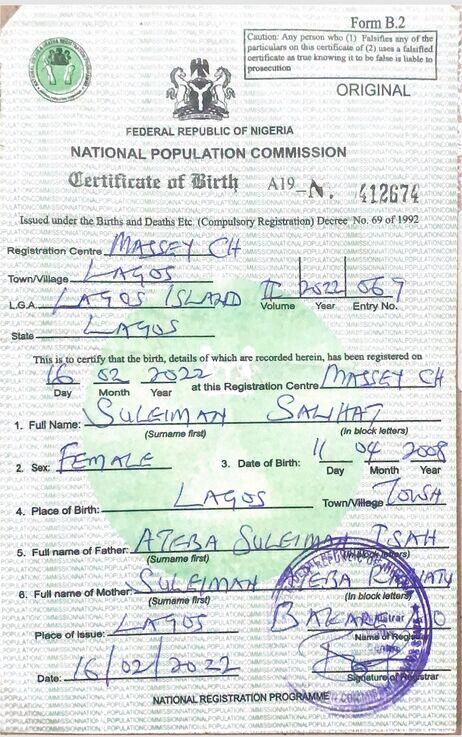 Form B.2
Caution: Any person who (1) Falsifies any of the
particulars on this certificate of (2) uses a falsified
certificate as true knowing it to be false is liable to
prosecution
ORIGINAL
FEDERAL REPUBLIC OF NIGERIA
NATIONAL POPULATION COMMISSION
Certificate of Birth A19-N. 412674
Issued under the Births and Deaths Etc. (Compulsory Registration) Decree No. 69 of 1992
Registration Centre MASSEY CH
Town/Village LAGOS
L.G.A. LAGOS ISLAND II 2022 069
Volume Year Entry No.
State LAGOS
This is to certify that the birth, details of which are recorded herein, has been registered on
16 02 2022 at this Registration Centre MASSEY CH
Day Month Year
1. Full Name: SULEIMAN SALIHAT
(Surname first) (In block letters)
2. Sex: FEMALE 3. Date of Birth: 11 04 2008
Day Month Year
4. Place of Birth: LAGOS Town/Village TOWN
5. Full name of Father: ATEBA SULEIMAN ISAH
(Surname first) (In block letters)
6. Full name of Mother: SULEIMAN
(Surname first) (In block letters)
Place of Issue: LAGOS BAKARE
Name of Registrar
Date: 16/02/2022
Signature of Registrar
NATIONAL REGISTRATION PROGRAMME